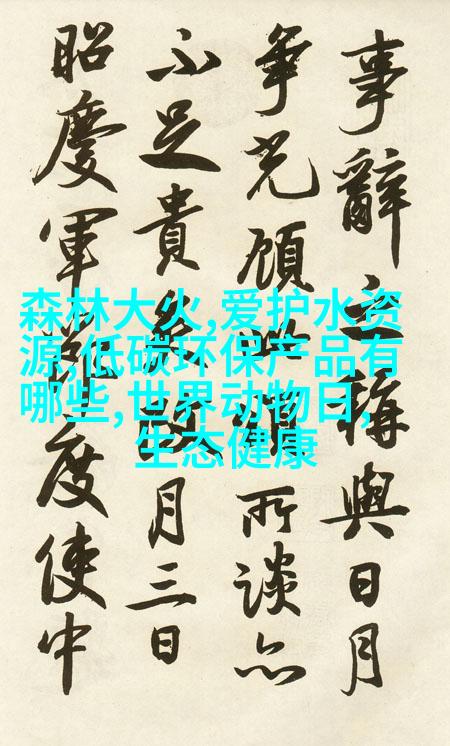 事辭之稱與日月
爭光顧所談亦
不足貴月三日
昭慶軍節度使中
森林大火,爱护水资
源,低碳环保产品有
哪些,世界动物日,
生态健康